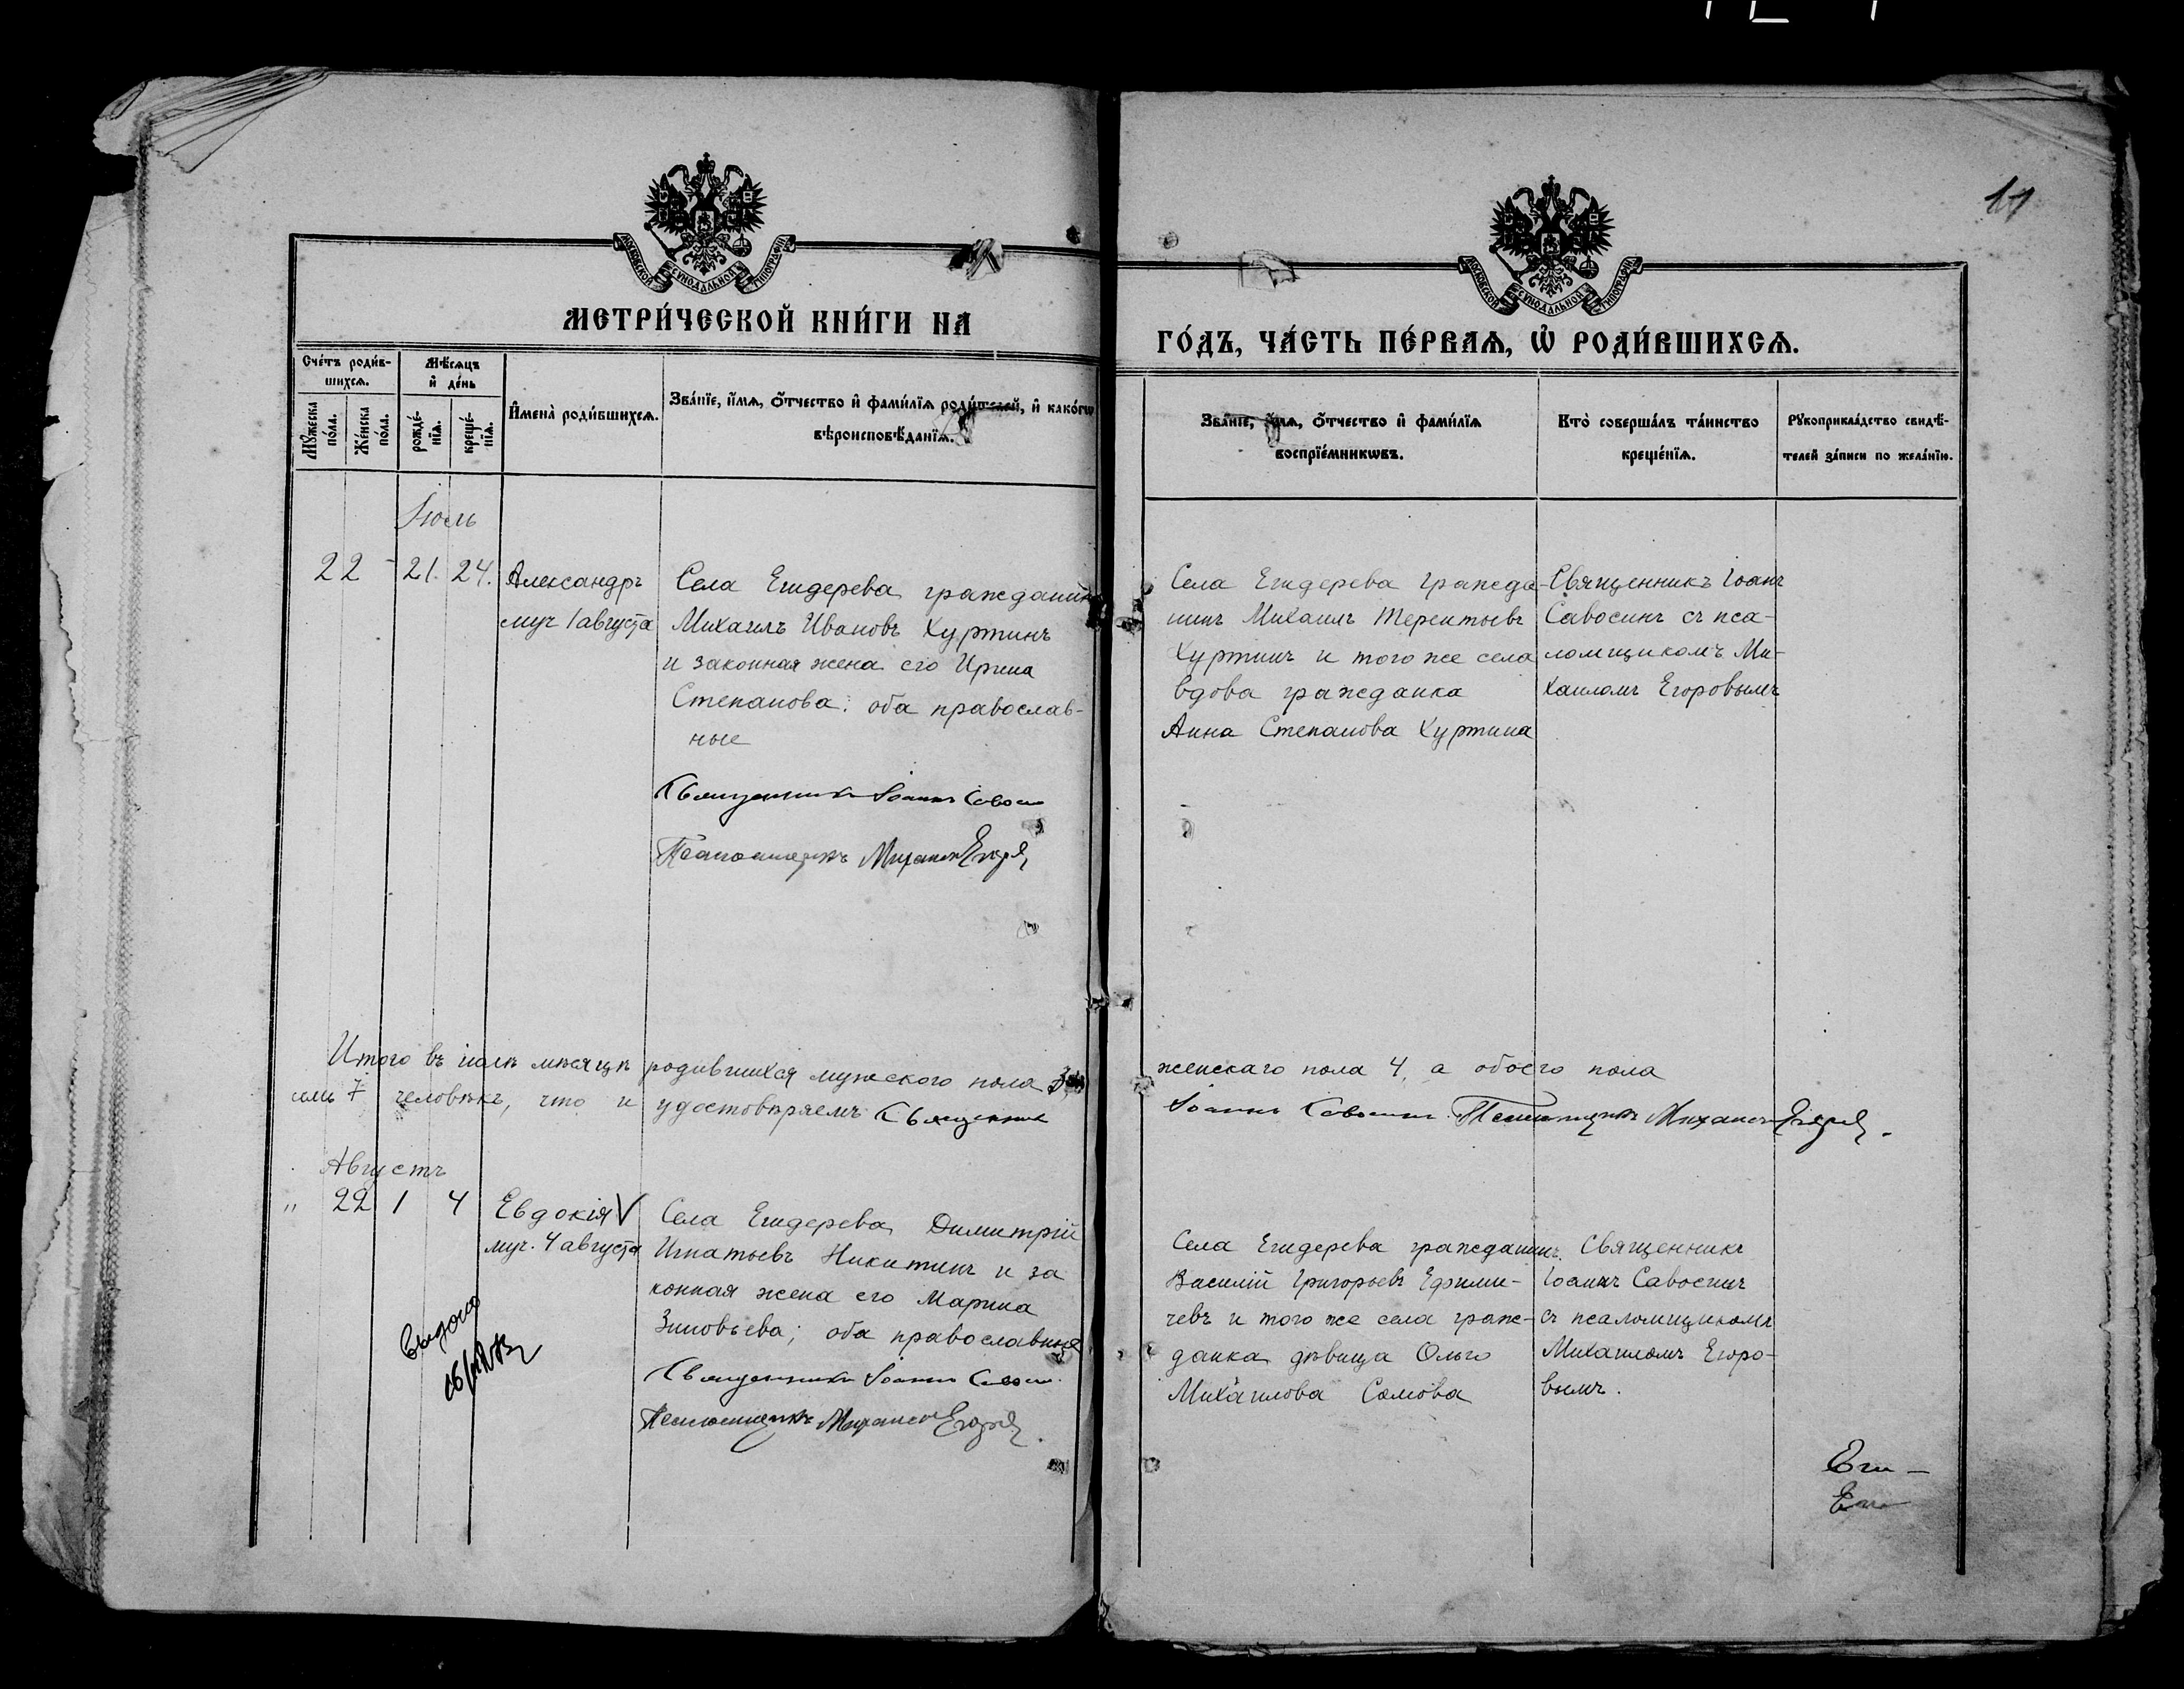 11
МОСКОВСКОЙ СѴНОДАЛЬНОЙ ТИПОГРАФІИ
МОСКОВСКОЙ СѴНОДАЛЬНОЙ ТИПОГРАФІИ
МЕТРИ́ЧЕСКОЙ КНИ́ГИ НА
ГО́ДЪ, ЧА́СТЬ ПЕ́РВАѦ, Ѡ҆ РОДИ́ВШИХСѦ.
Сче́тъ роди́в-
шихсѧ.
Мѣ́сѧцъ
и҆ де́нь
Мꙋ́жеска
по́ла.
Же́нска
по́ла.
рожде́-
нїѧ.
креще́-
нїѧ.
И҆мена̀ роди́вшихсѧ.
Зва́нїе, и҆́мѧ, ѻ҆́тчество и҆ фами́лїѧ роди́телей, и҆ како́гѡ
вѣроисповѣ́данїѧ.
Зва́нїе, и҆́мѧ, ѻ҆́тчество и҆ фами́лїѧ
воспрїе́мникѡвъ.
Кто̀ соверша́лъ та́инство
креще́нїѧ.
Рꙋкоприкла́дство свидѣ́-
телей за́писи по жела́нїю.
Іюль
22 - 21. 24.
Александръ
муч 1 августа
Села Егидерева гражданинъ
Михаилъ Ивановъ Куртинъ
и законная жена его Ирина
Степанова: оба православ-
ные
Священникъ Іоаннъ Савосинъ
Псаломщикъ Михаилъ Егоровъ
Села Егидерева гражда-
нинъ Михаилъ Терентьевъ
Куртинъ и того же села
вдова гражданка
Анна Степанова Куртина
Священникъ Іоаннъ
Савосинъ съ пса-
ломщикомъ Ми-
хаиломъ Егоровымъ
Итого въ іюлѣ мѣсяцѣ родившихся мужского пола 3 женскаго пола 4, а обоего пола
семь 7 человѣкъ, что и удостовѣряемъ Священникъ Іоаннъ Савосинъ. Псаломщикъ Михаилъ Егоровъ.
Августъ
" 22 1 4
Евдокія V
муч. 4 августа
Села Егидерева Димитрій
Игнатьевъ Никитинъ и за
конная жена его Марина
Зиновьева; оба православные
Священникъ Іоаннъ Савосинъ.
Псаломщикъ Михаилъ Егоровъ.
выдано
Села Егидерева гражданинъ
Василій Григорьевъ Ефими-
чевъ и того же села граж-
данка дѣвица Ольга
Михаилова Самова
Священникъ
Іоаннъ Савосинъ
съ псаломщикомъ
Михаиломъ Егоро-
вымъ.